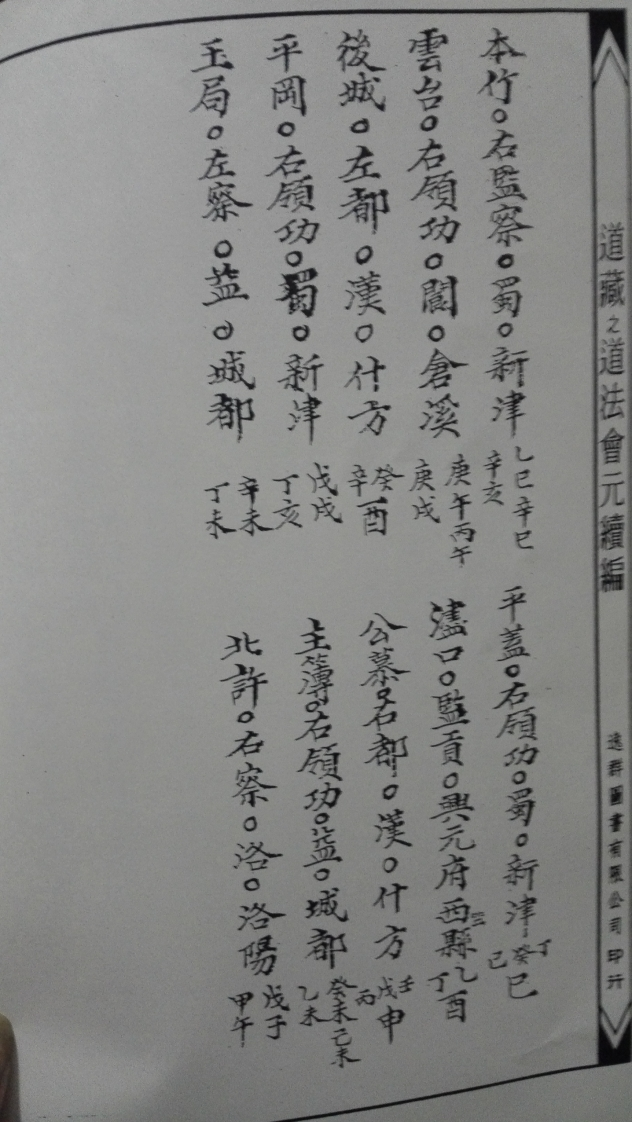 道藏之道法會元續編
逸群圖書有限公司 印行
本竹。右監察。蜀。新津 乙巳辛巳
辛亥
平蓋。右領功。蜀。新津 丁
癸巳
己
雲台。右領功。閬。倉溪 庚午丙午
庚戌
濜口。監貢。興元府西縣 三
乙酉
丁
後城。左都。漢。什方 癸酉
辛
公慕。右都。漢。什方 壬
戊申
丙
平岡。右領功。蜀。新津 戊戌
丁亥
主簿。右領功。益。城都 癸未己未
乙未
玉局。左察。益。城都 辛未
丁未
北許。右察。洛。洛陽 戊子
甲午